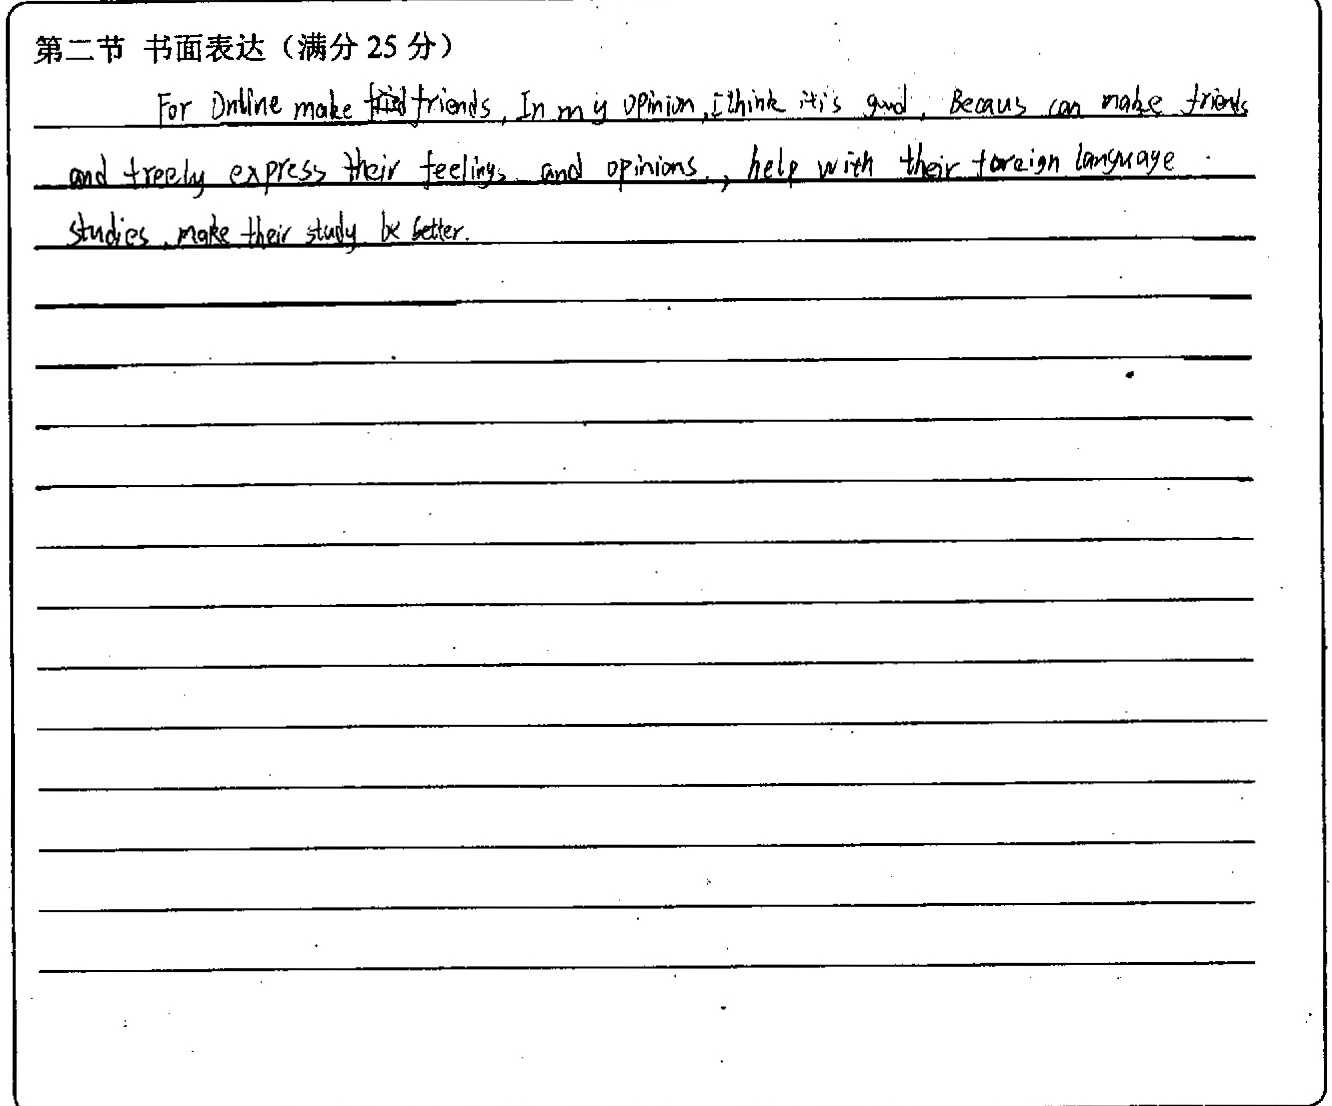 第二节 书面表达（满分 25 分）
For Online make friend friends, In my opinion, I think it's good. Becaus can make friends
and freely express their feelings and opinions., help with their foreign language
studies, make their study be better.